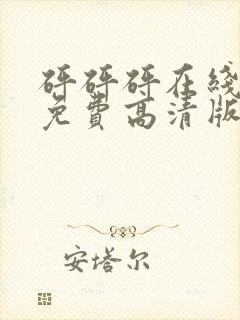 砰砰砰在线
免费高清版
安塔尔